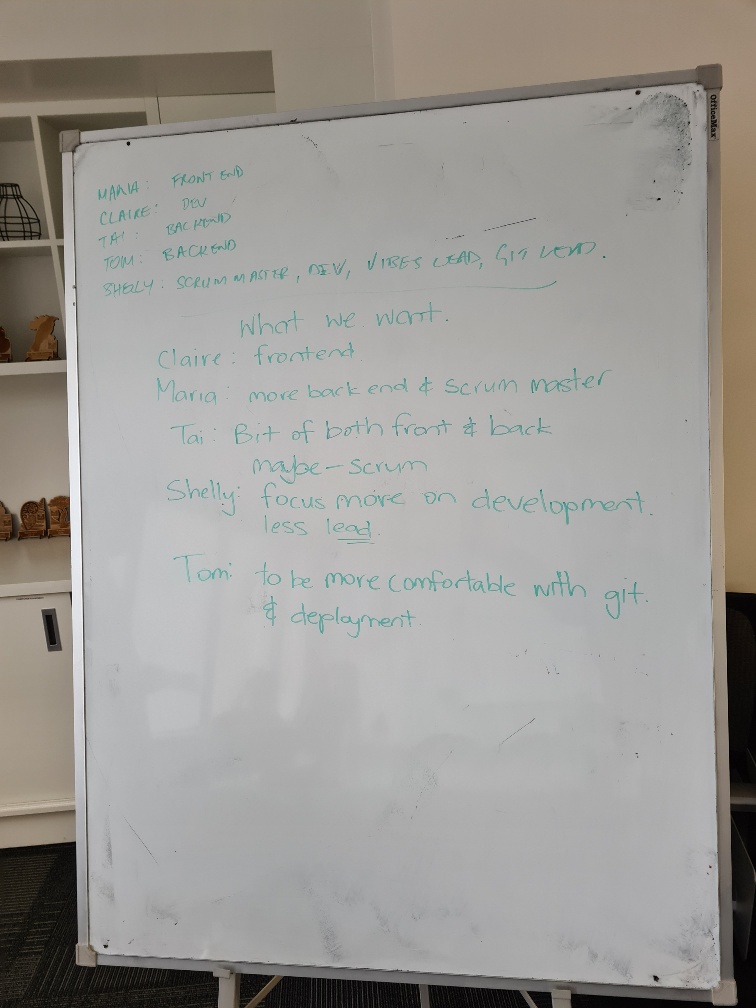 OfficeMax
MARIA: FRONT END
CLAIRE: DEV
TAI: BACKEND
TOM: BACKEND
SHELLY: SCRUM MASTER, DEV, VIBES LEAD, GIT LEAD.
What we want.
Claire: frontend
Maria: more back end & scrum master
Tai: Bit of both front & back
maybe - scrum
Shelly: focus more on development.
less lead.
Tom: to be more comfortable with git.
& deployment.